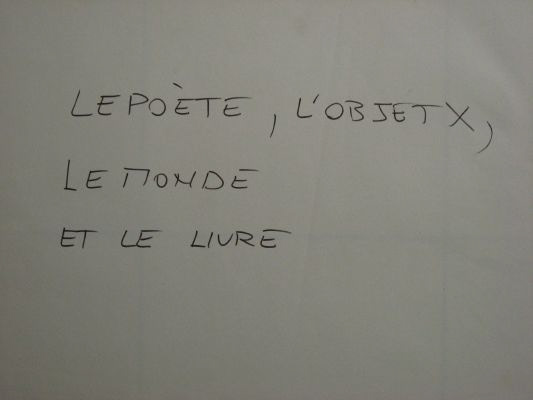 LE POÈTE, L'OBJET X,
LE MONDE
ET LE LIVRE